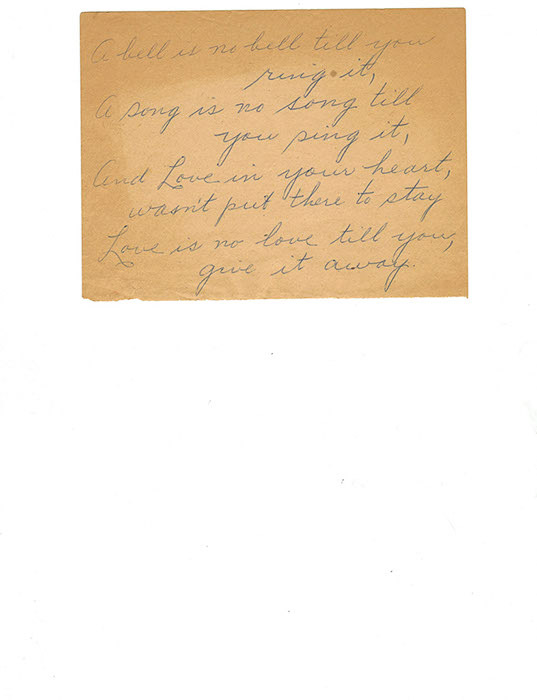 A bell is no bell till you
ring it,
A song is no song till
you sing it,
And Love in your heart,
wasn't put there to stay
Love is no love till you,
give it away.